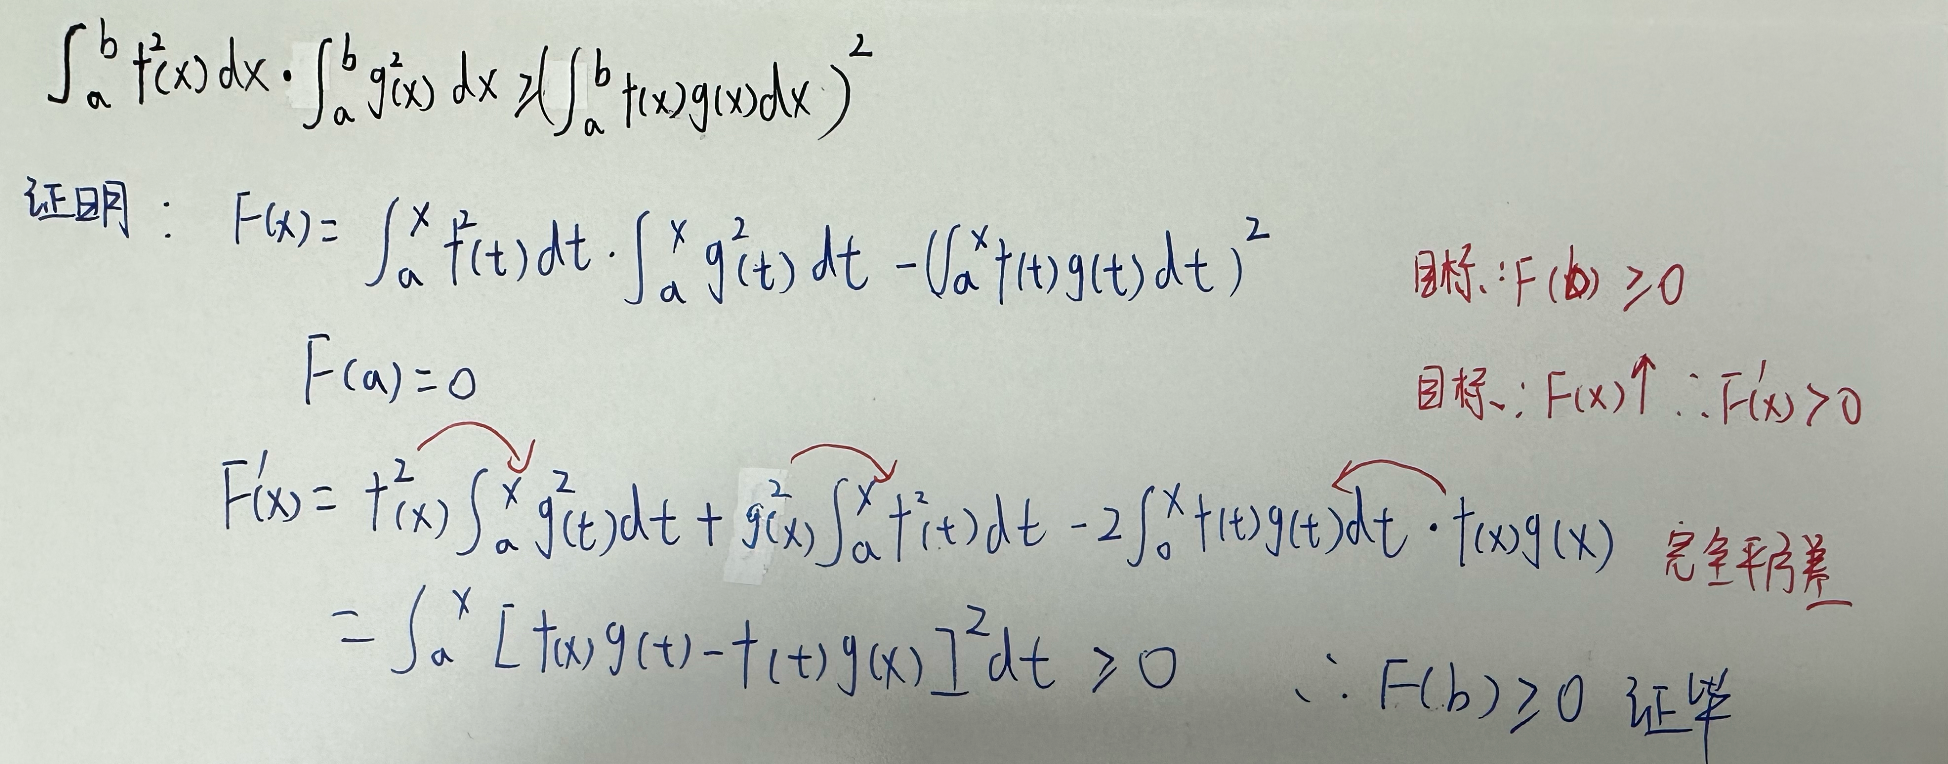 ∫_a^b f²(x)dx·∫_a^b g²(x)dx ≥ (∫_a^b f(x)g(x)dx)²
证明: F(x)= ∫_a^x f²(t)dt·∫_a^x g²(t)dt -(∫_a^x f(t)g(t)dt)²
目标:F(b)≥0
F(a)=0
目标:F(x)↑ ∴F'(x)>0
F'(x)= f²(x)∫_a^x g²(t)dt + g²(x)∫_a^x f²(t)dt -2∫_0^x f(t)g(t)dt·f(x)g(x) 完全平方差
=∫_a^x [f(x)g(t)-f(t)g(x)]²dt ≥0 ∴F(b)≥0 证毕